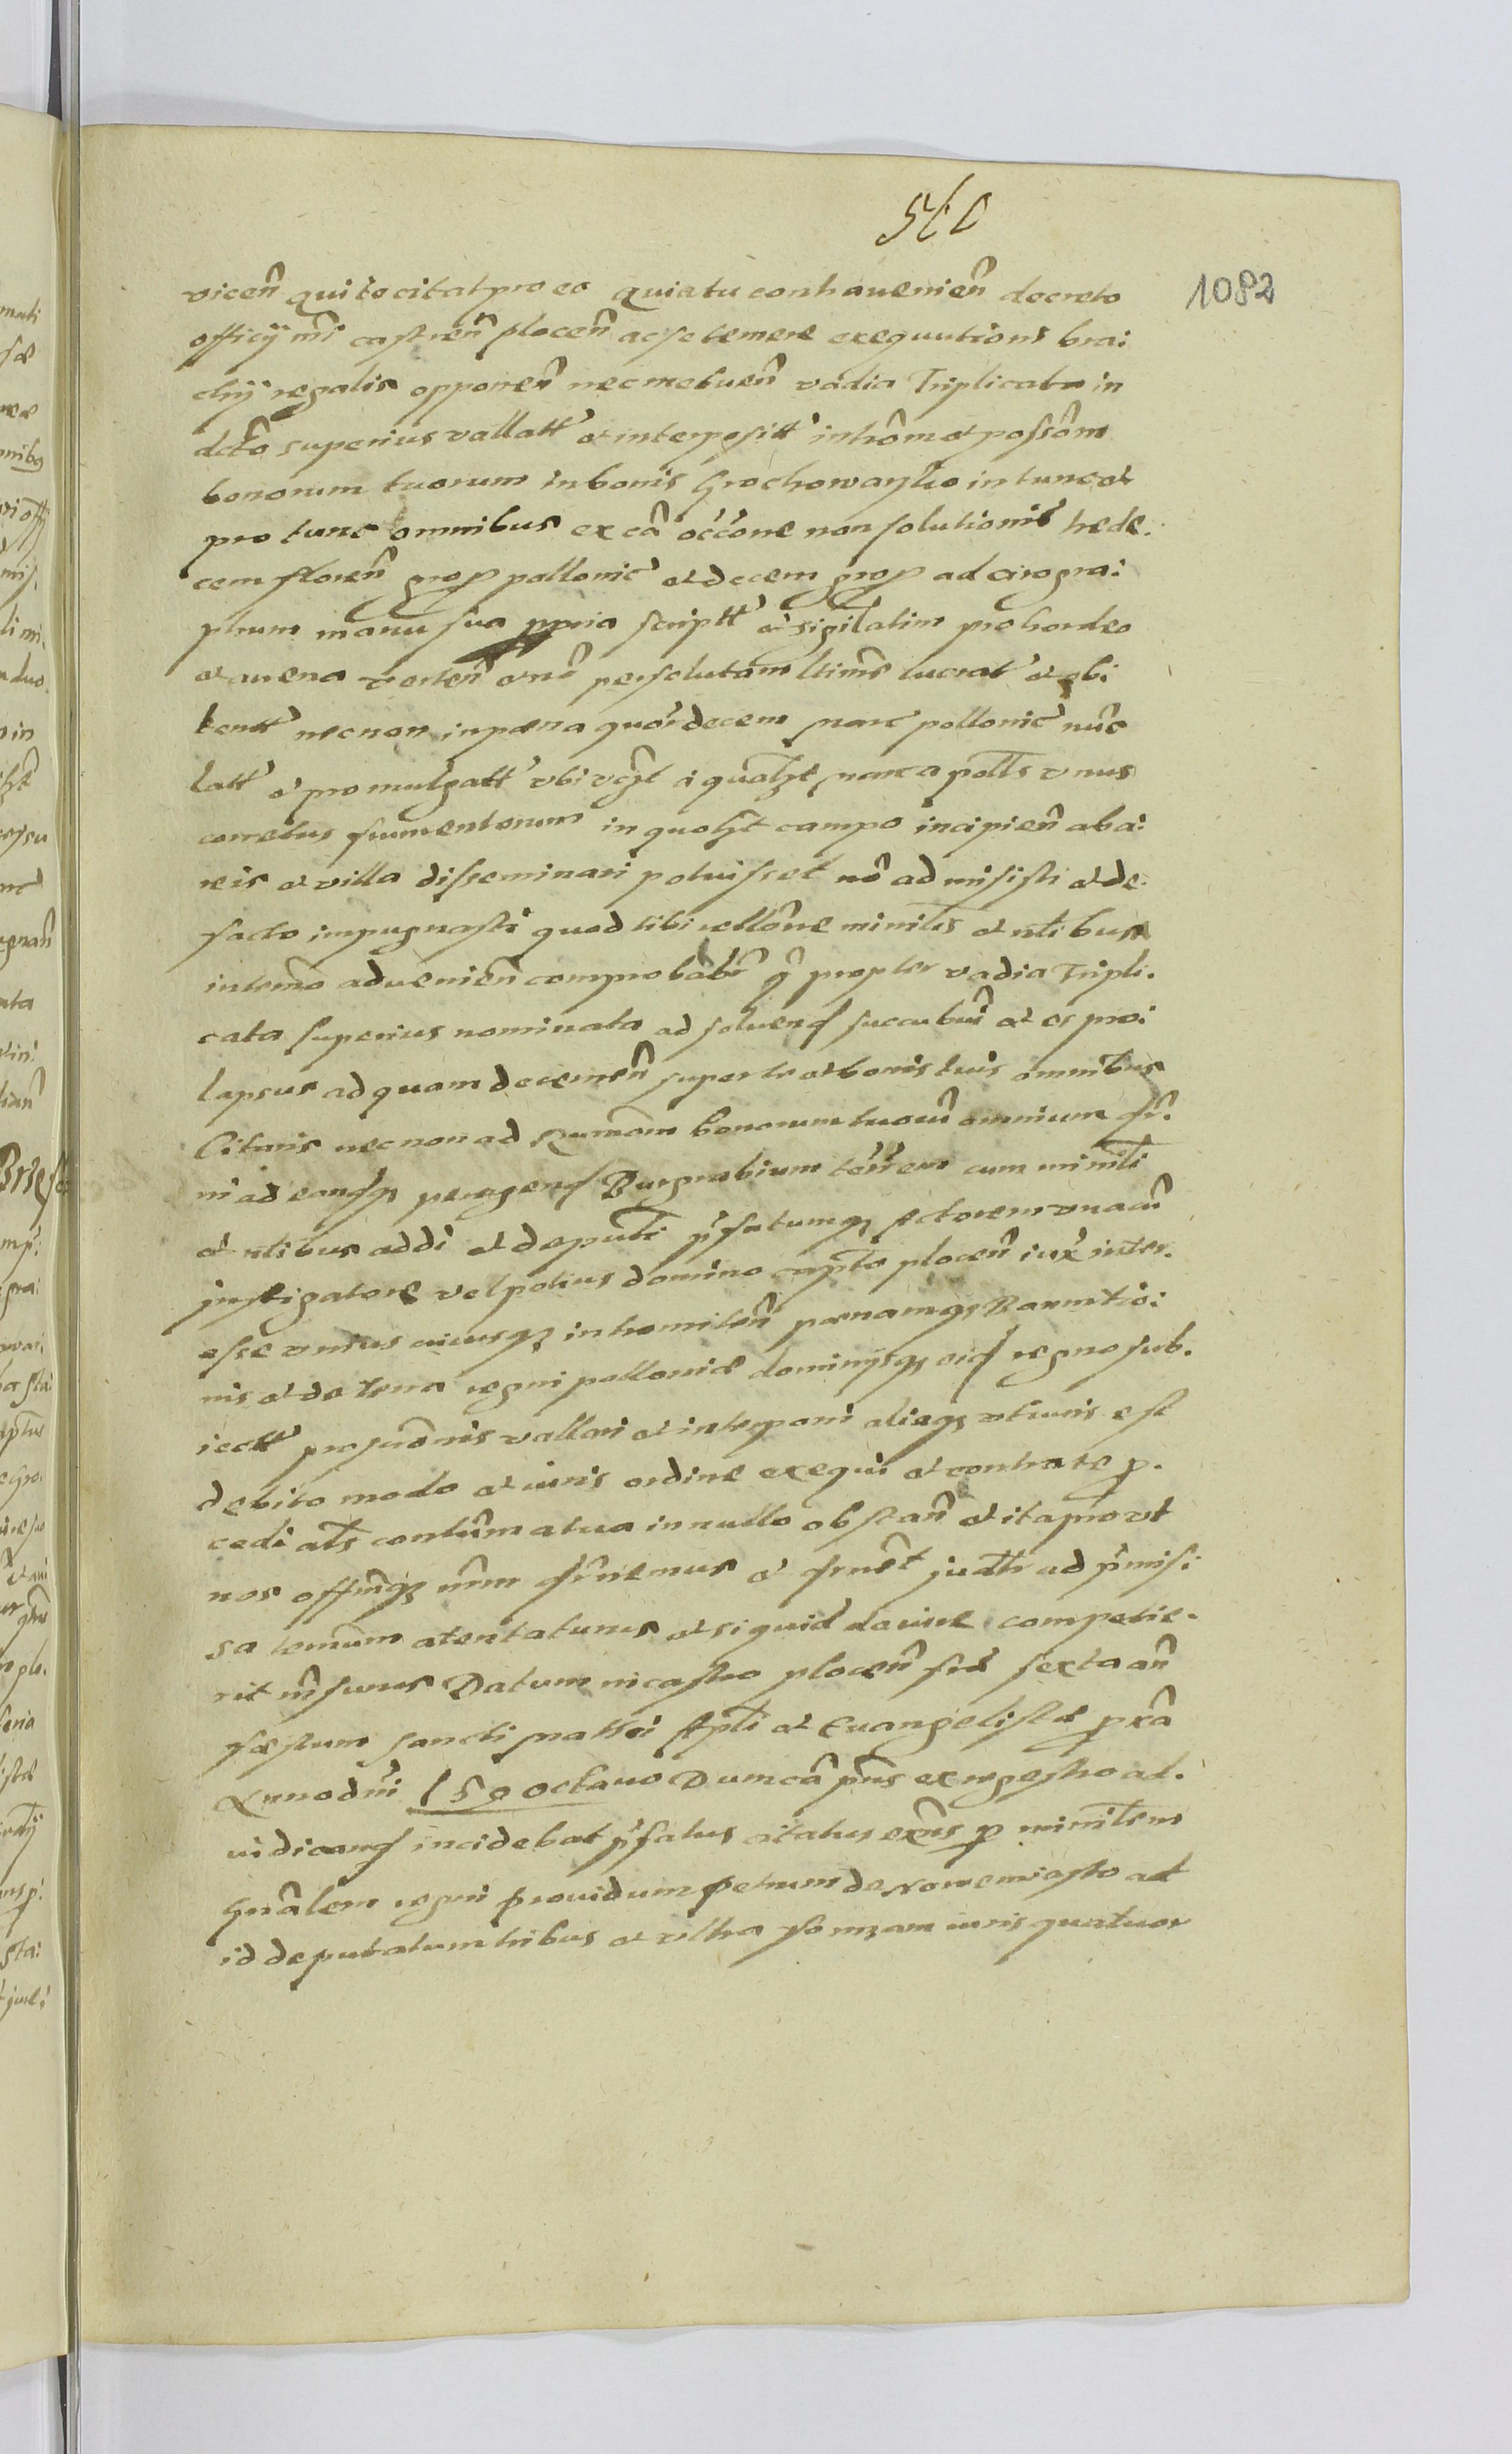 1082
vicen̄ qui te citat pro eo quia tu contraueniēn decreto
officij nr̄i castren̄ plocen̄ ac se temere exequutioni bra:
chij regalis opponen̄ nec metuen̄ vadia Triplicata in
dcto superius vallatt et interpositt introm̄ et possōm
bonorum tuorum in bonis Grochowarsko in tunc et
pro tunc omnibus ex cā occōne non solutionis trede:
cem floren̄ gros pollonic et decem gros ad cirogra:
phum manu sua ppria scriptt et sigillatim pro hordeo
et auena verten̄ et nō persolutam ltīms lucrat et obi
tentt necnon in pœna quordecem marc pollonic nūc
latt et promulgatt vbi vḡt quālꝫt marca polls vnus
corretus frumentorum in quolꝫt campo incipien̄ ab a:
reis et villa disseminari potuisset nō admisisti et de
facto impugnasti quod tibi rellōne minilis et nlibus
in termō aduenien̄ comprobābr q̄ propter vadia Tripli:
cata superius nominata ad soluend succubūi et es pro:
lapsus ad quam decernen̄ super te et bonis tuis omnibus
Citaris necnon ad Rumōm bonorum tuorū omnium fir̄
ni ad eandqꝫ peragend Burgrabium terren cum minili
et nlibus addi et deputi p̄fatumqꝫ Actorem vnacū
instigatore vel potius domino capto plocen̄ iux̄ inter
esse vnius cuiusqꝫ intromitten̄ pœnamqꝫ Bannitio:
nis et de terra regni polloniæ dominijsqꝫ eid regno sub
iectt proscrōnis vallari et interponi aliaqꝫ vt iuris est
debito modo et iuris ordine exequi et contra te p
cedi als contūm̄a tua in nullo obstan̄ et ita prout
nos offmqꝫ nrm̄ firnemus et fruet judtr ad p̄mis:
sa termūm atentaturus et si quid de iure competie
rit rn̄surus Datum in castro plocen̄ fria sexta an̄
fæstum sancti Matthei Apli et Euangelistæ pxā
Anno dn̄i 159 octauo Dum cā pn̄s ex regestro ad
iudicand incidebat p̄fatus citatus exn̄s p minilem
gnālem regni prouidum petrum de Nowemiasto ad
id deputatum tribus et vltra formam iuris quatuor